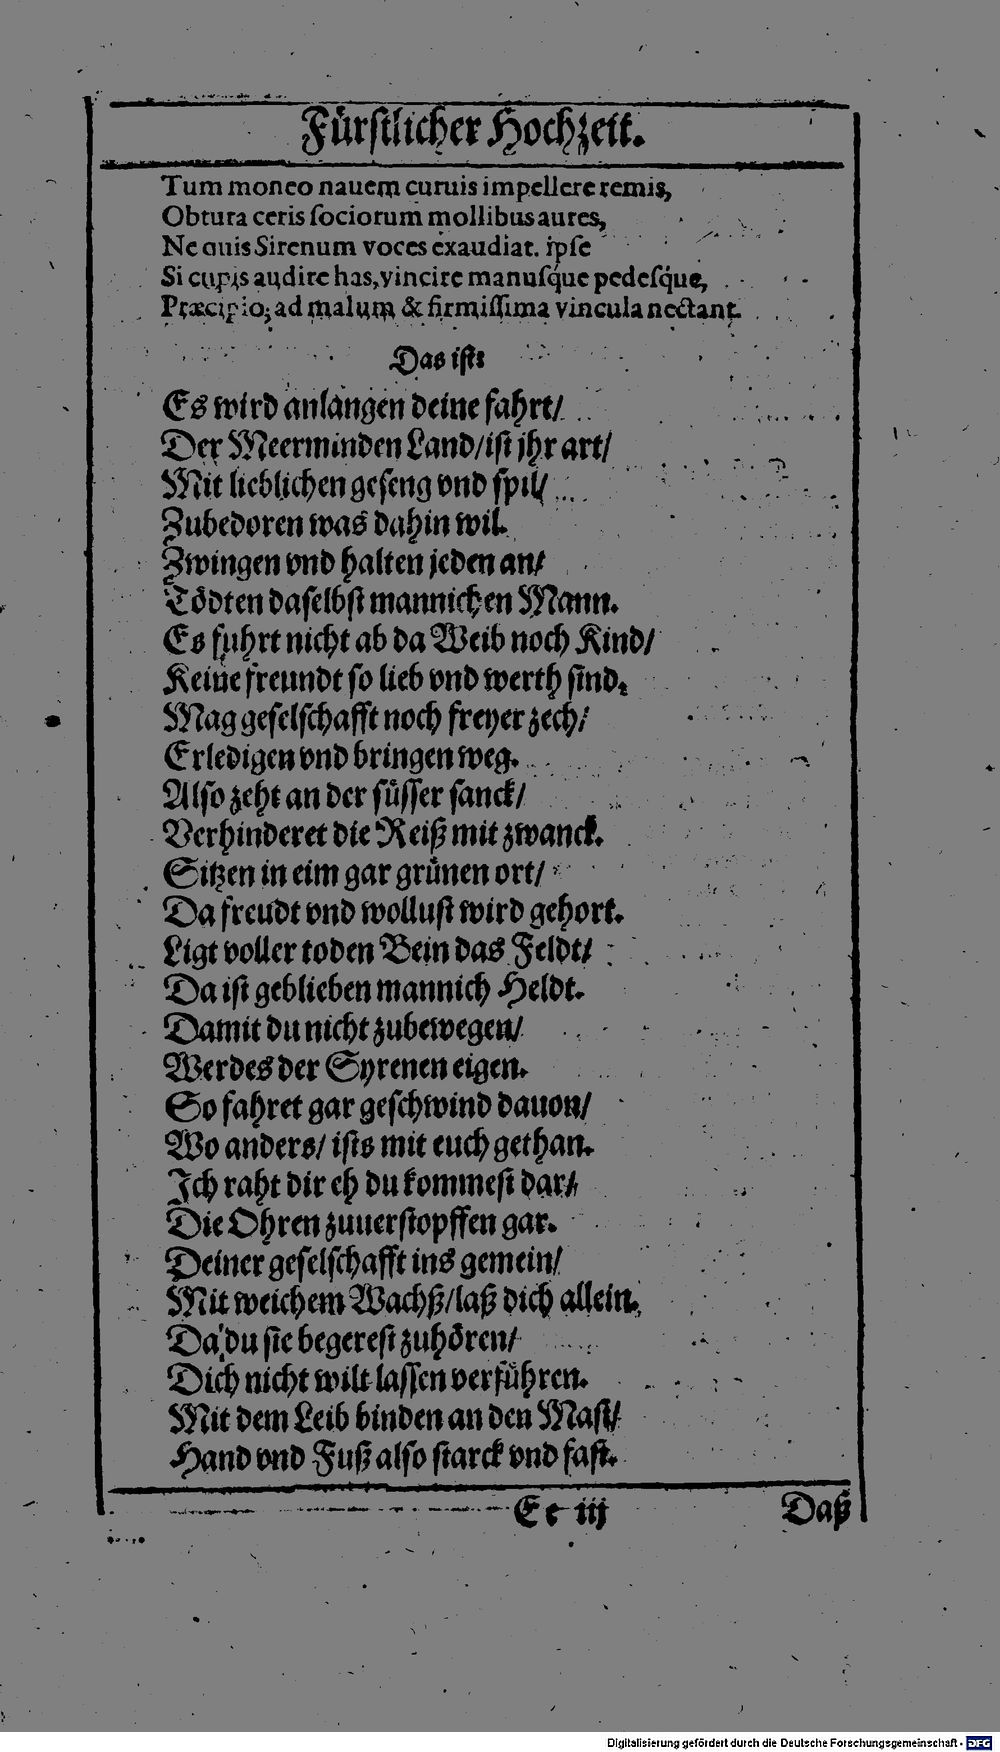 Fürſtlicher Hochzeit.
Tum moneo nauem curuis impellere remis,
Obtura ceris ſociorum mollibus aures,
Ne quis Sirenum voces exaudiat. ipſe
Si cupis audire has, vincire manuſq́ue pedeſq́ue,
Præcipio, ad malum & firmiſſima vincula nectant.
Das iſt:
Es wird anlangen deine fahrt/
Der Meerminden Land/iſt jhr art/
Mit lieblichen geſeng vnd ſpil/
Zubedoren was dahin wil.
Zwingen vnd halten jeden an/
Tödten daſelbſt mannichen Mann.
Es fuhrt nicht ab da Weib noch Kind/
Keine freundt ſo lieb vnd werth ſind.
Mag geſelſchafft noch freyer zech/
Erledigen vnd bringen weg.
Alſo zeht an der ſüſſer ſanck/
Verhinderet die Reiß mit zwanck.
Sitzen in eim gar grünen ort/
Da freudt vnd wolluſt wird gehort.
Ligt voller toden Bein das Feldt/
Da iſt geblieben mannich Heldt.
Damit du nicht zubewegen/
Werdes der Syrenen eigen.
So fahret gar geſchwind dauon/
Wo anders/ iſts mit euch gethan.
Ich raht dir eh du kommeſt dar/
Die Ohren zuuerſtopffen gar.
Deiner geſelſchafft ins gemein/
Mit weichem Wachß/laß dich allein.
Da du ſie begereſt zuhören/
Dich nicht wilt laſſen verführen.
Mit dem Leib binden an den Maſt/
Hand vnd Fuß alſo ſtarck vnd faſt.
E e iij Daß
Digitalisierung gefördert durch die Deutsche Forschungsgemeinschaft - DFG